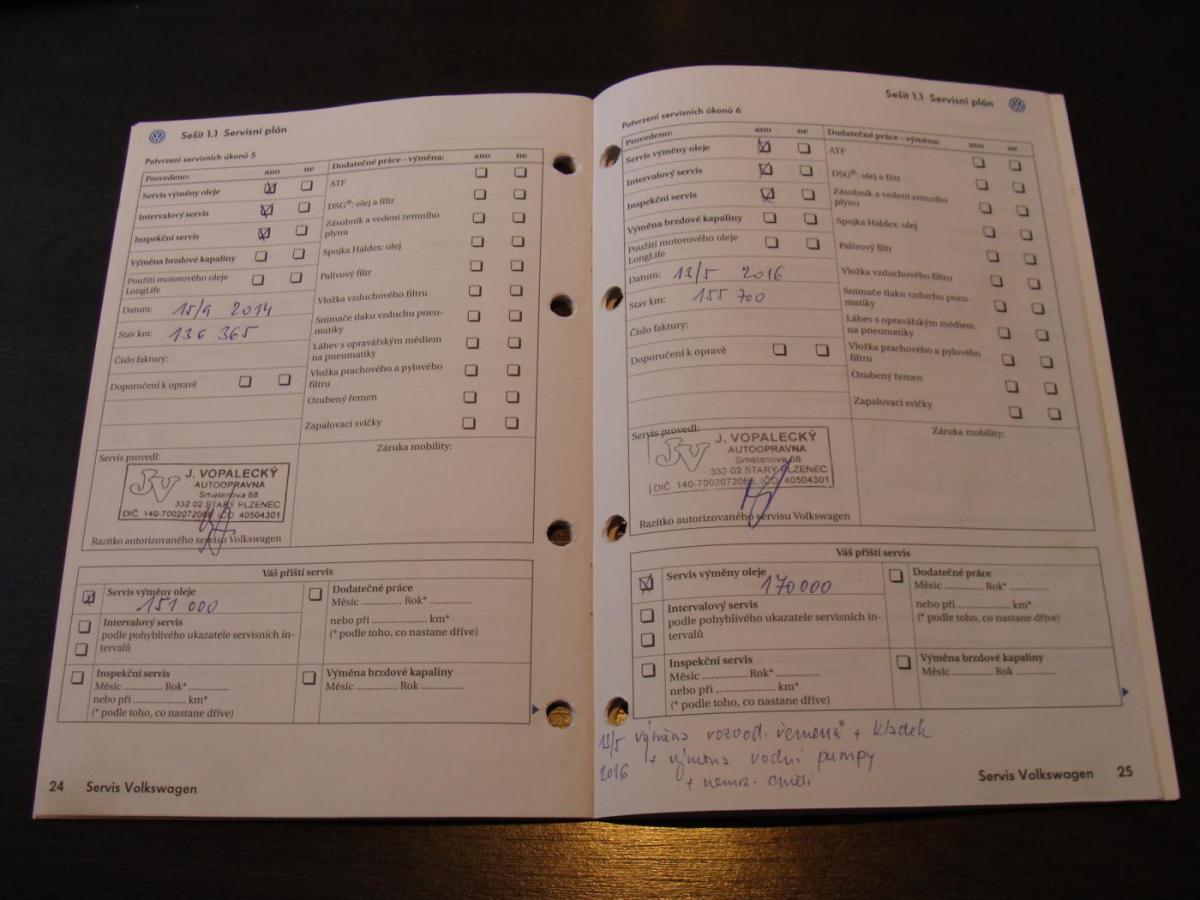 Sešit 1.1 Servisní plán
Potvrzení servisních úkonů 5
Provedeno: ano ne
Servis výměny oleje
Intervalový servis
Inspekční servis
Výměna brzdové kapaliny
Použití motorového oleje
LongLife
Datum: 15/9 2014
Stav km: 136 365
Číslo faktury:
Doporučení k opravě
Dodatečné práce - výměna: ano ne
ATF
DSG®: olej a filtr
Zásobník a vedení zemního
plynu
Spojka Haldex: olej
Palivový filtr
Vložka vzduchového filtru
Snímače tlaku vzduchu pneu-
matiky
Láhev s opravářským médiem
na pneumatiky
Vložka prachového a pylového
filtru
Ozubený řemen
Zapalovací svíčky
Servis provedl:
JV
J. VOPALECKÝ
AUTOOPRAVNA
Smetanova 68
332 02 STARÝ PLZENEC
DIČ 140-7002072066, IČO 40504301
Razítko autorizovaného servisu Volkswagen
Záruka mobility:
Váš příští servis
Servis výměny oleje
151 000
Intervalový servis
podle pohyblivého ukazatele servisních in-
tervalů
Inspekční servis
Měsíc .............. Rok* ..............
nebo při .............. km*
(* podle toho, co nastane dříve)
Dodatečné práce
Měsíc .............. Rok* ..............
nebo při .............. km*
(* podle toho, co nastane dříve)
Výměna brzdové kapaliny
Měsíc .............. Rok ..............
24 Servis Volkswagen
Sešit 1.1 Servisní plán
Potvrzení servisních úkonů 6
Provedeno: ano ne
Servis výměny oleje
Intervalový servis
Inspekční servis
Výměna brzdové kapaliny
Použití motorového oleje
LongLife
Datum: 12/5 2016
Stav km: 155 700
Číslo faktury:
Doporučení k opravě
Dodatečné práce - výměna: ano ne
ATF
DSG®: olej a filtr
Zásobník a vedení zemního
plynu
Spojka Haldex: olej
Palivový filtr
Vložka vzduchového filtru
Snímače tlaku vzduchu pneu-
matiky
Láhev s opravářským médiem
na pneumatiky
Vložka prachového a pylového
filtru
Ozubený řemen
Zapalovací svíčky
Servis provedl:
JV
J. VOPALECKÝ
AUTOOPRAVNA
Smetanova 68
332 02 STARÝ PLZENEC
DIČ 140-7002072066, IČO 40504301
Razítko autorizovaného servisu Volkswagen
Záruka mobility:
Váš příští servis
Servis výměny oleje
170000
Intervalový servis
podle pohyblivého ukazatele servisních in-
tervalů
Inspekční servis
Měsíc .............. Rok* ..............
nebo při .............. km*
(* podle toho, co nastane dříve)
Dodatečné práce
Měsíc .............. Rok* ..............
nebo při .............. km*
(* podle toho, co nastane dříve)
Výměna brzdové kapaliny
Měsíc .............. Rok ..............
12/5 výměna rozvod. řemenů + kladek
2016 + výměna vodní pumpy
+ nemrz. směsi
Servis Volkswagen 25